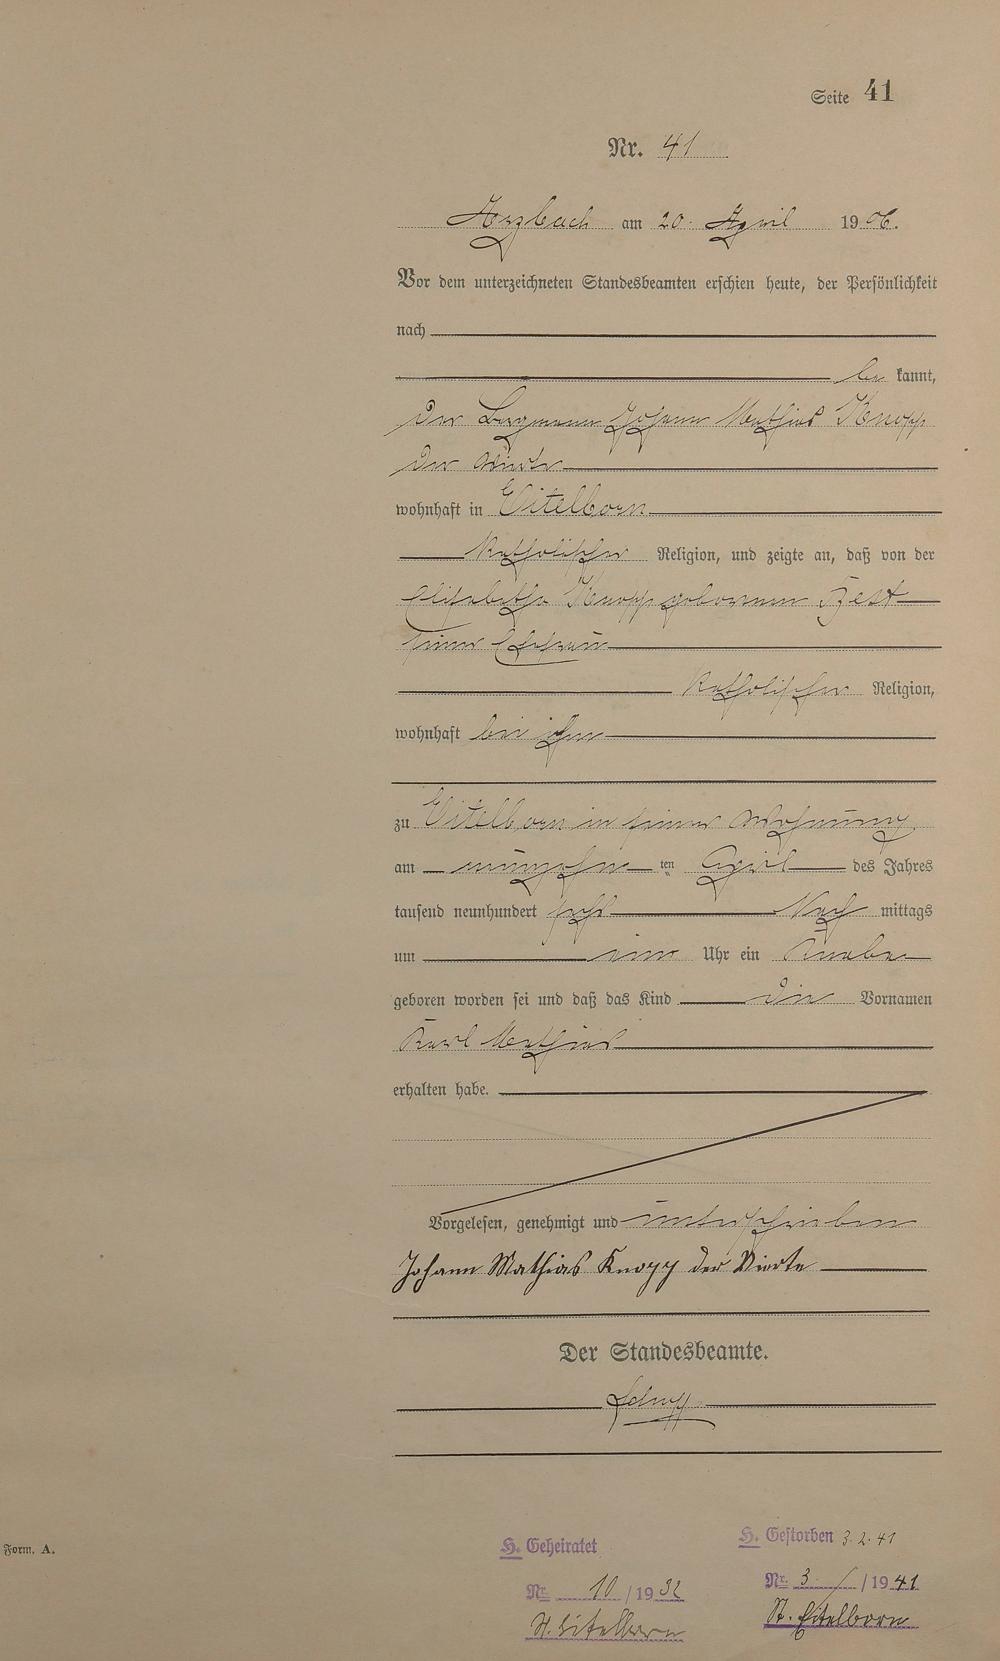 Seite 41
Nr. 41
Arzbach am 20. April 1906.
Vor dem unterzeichneten Standesbeamten erschien heute, der Persönlichkeit
nach
be kannt,
der Bergmann Johann Mathias Knopp
der Vierte
wohnhaft in Eitelborn
katholischer Religion, und zeigte an, daß von der
Elisabetha Knopp geborenen
seiner Ehefrau
katholischer Religion,
wohnhaft bei ihm
zu Eitelborn in seiner Wohnung
am neunzehn ten April des Jahres
tausend neunhundert sechs Nach mittags
um ein Uhr ein Knabe
geboren worden sei und daß das Kind die Vornamen
Karl Mathias
erhalten habe.
Vorgelesen, genehmigt und unterschrieben
Johann Mathias Knopp der Vierte
Der Standesbeamte.
Form. A.
H. Geheiratet
Nr. 10 / 1932
St. Eitelborn
H. Gestorben 3.2.41
Nr. 3 / 1941
St. Eitelborn